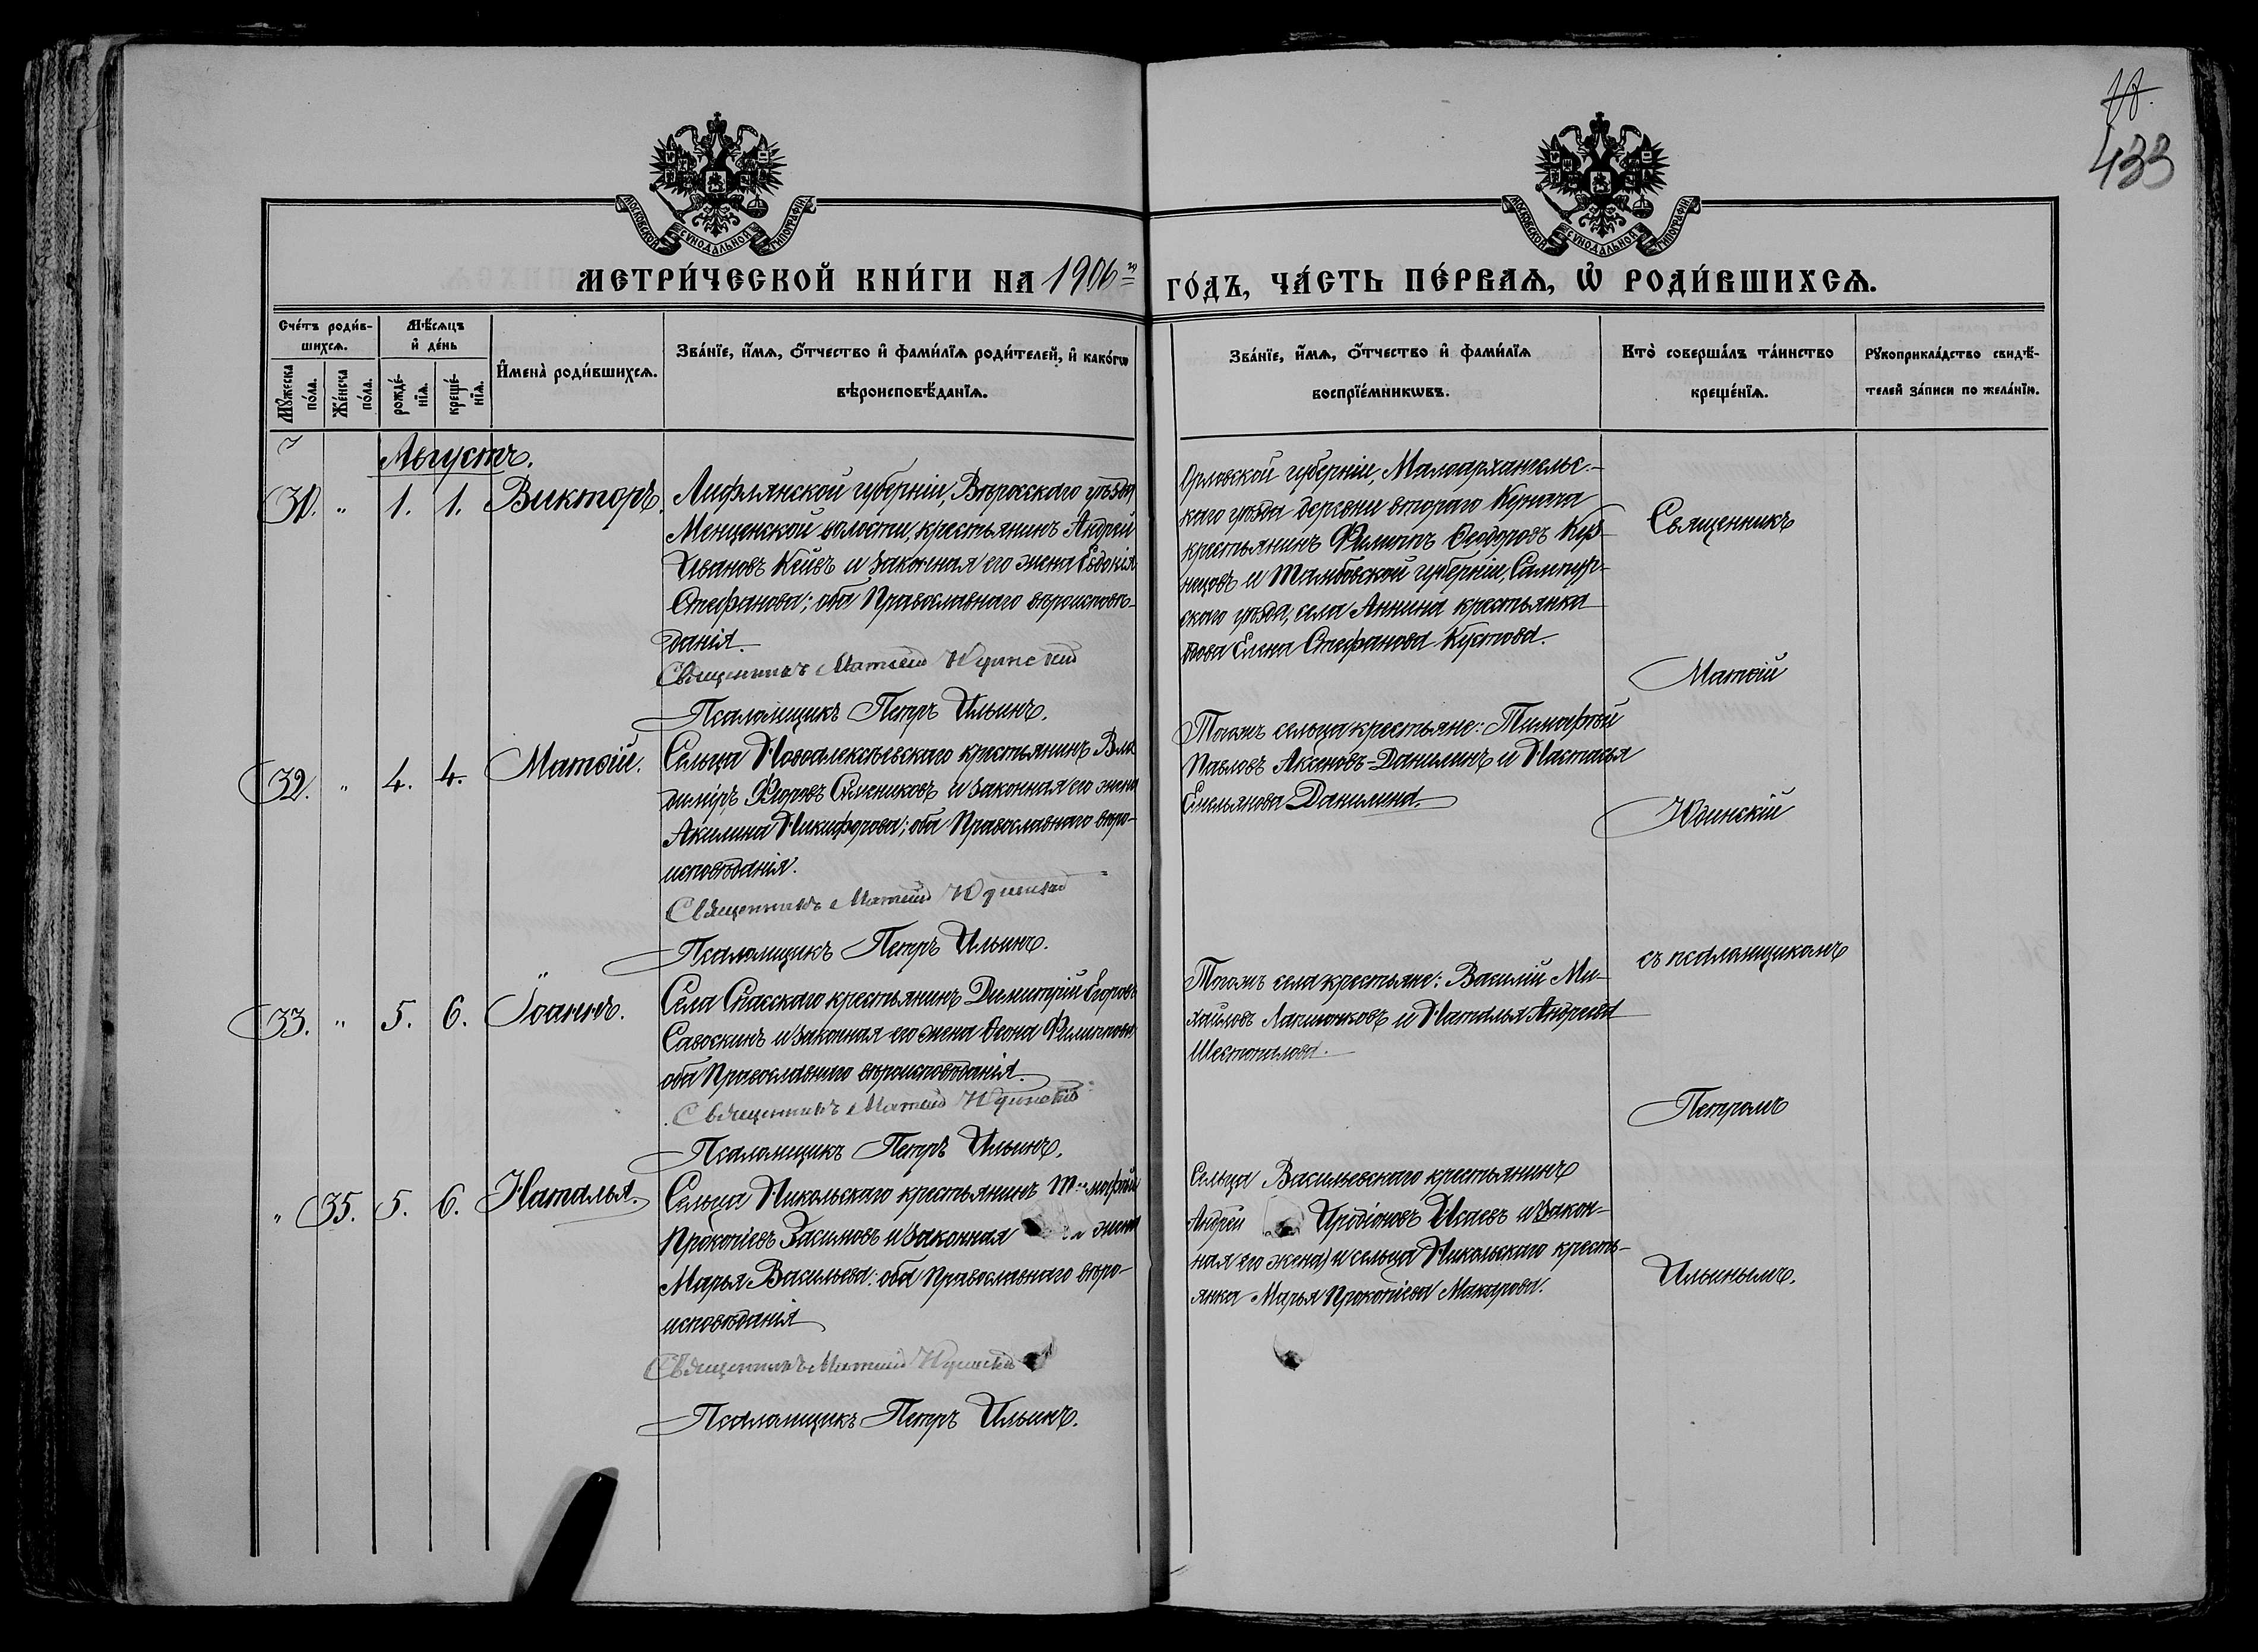 18.
433
МОСКОВСКОЙ СУНОДАЛЬНОЙ ТИПОГРАФІИ
МОСКОВСКОЙ СУНОДАЛЬНОЙ ТИПОГРАФІИ
МЕТРИ́ЧЕСКОЙ КНИ́ГИ НА 1906 го
ГО́ДЪ, ЧА́СТЬ ПЕ́РВАѦ, Ѡ҆ РОДИ́ВШИХСѦ.
Сче́тъ роди́в-
шихсѧ.
Мꙋ́жеска по́ла.
Же́нска по́ла.
Мѣ́сѧцъ
и҆ де́нь
рожде́-
нїѧ.
креще́-
нїѧ.
И҆мена̀ роди́вшихсѧ.
Зва́нїе, и҆́мѧ, ѻ҆́тчество и҆ фами́лїѧ роди́телей, и҆ како́гѡ
вѣроисповѣ́данїѧ.
Зва́нїе, и҆́мѧ, ѻ҆́тчество и҆ фами́лїѧ
воспрїе́мникѡвъ.
Кто̀ соверша́лъ та́инство
креще́нїѧ.
Рꙋкоприкла́дство свидѣ́-
телей за́писи по жела́нїю.
Августъ.
31. " 1. 1. Викторъ.
Лифлянской губерніи, Верросскаго уѣзда
Менценской волости, крестьянинъ Андрей
Ивановъ Кейвъ и законная его жена Евдокія
Стефанова; оба Православнаго вѣроисповѣ-
данія.
Священникъ Матѳій Юдинскій
Псаломщикъ Петръ Ильинъ.
Орловской губерніи, Малоархангельс-
каго уѣзда деревни втораго Кунача
крестьянинъ Филиппъ Ѳеодоровъ Куз-
нецовъ и Тамбовской губерніи,
скаго уѣзда, села Аннина крестьянка
вдова Елена Стефанова Кустова.
32. " 4. 4. Матѳій.
Сельца Новоалексѣевскаго крестьянинъ Вла-
диміръ Ѳедоровъ и законная его жена
Акилина Никифорова; оба Православнаго вѣро-
исповѣданія.
Священникъ Матѳій Юдинскій
Псаломщикъ Петръ Ильинъ.
Тогожъ сельца крестьяне: Тимофѣй
Павловъ Аксеновъ-Данилинъ и Наталья
Емельянова Данилина.
33. " 5. 6. Іоаннъ.
Села Спасскаго крестьянинъ Димитрій Егоровъ
Савоскинъ и законная его жена Ѳеона Филиппова
оба Православнаго вѣроисповѣданія.
Священникъ Матѳій Юдинскій
Псаломщикъ Петръ Ильинъ.
Тогожъ села крестьяне: Василій Ми-
хайловъ Лапшонковъ и Наталья Андреева
Шестопалова.
" 35. 5. 6. Наталья.
Сельца Никольскаго крестьянинъ Тимофѣй
Прокопіевъ Засимовъ и законная жена
Марья Васильева: оба Православнаго вѣро-
исповѣданія
Священникъ Матѳій Юдинскій
Псаломщикъ Петръ Ильинъ.
Сельца Васильевскаго крестьянинъ
Андрей Иродіоновъ Исаевъ и закон-
ная его жена) и сельца Никольскаго кресть-
янка Марья Прокопіева Макарова.
Священникъ
Матѳій
Юдинскій
съ псаломщикомъ
Петромъ
Ильинымъ.